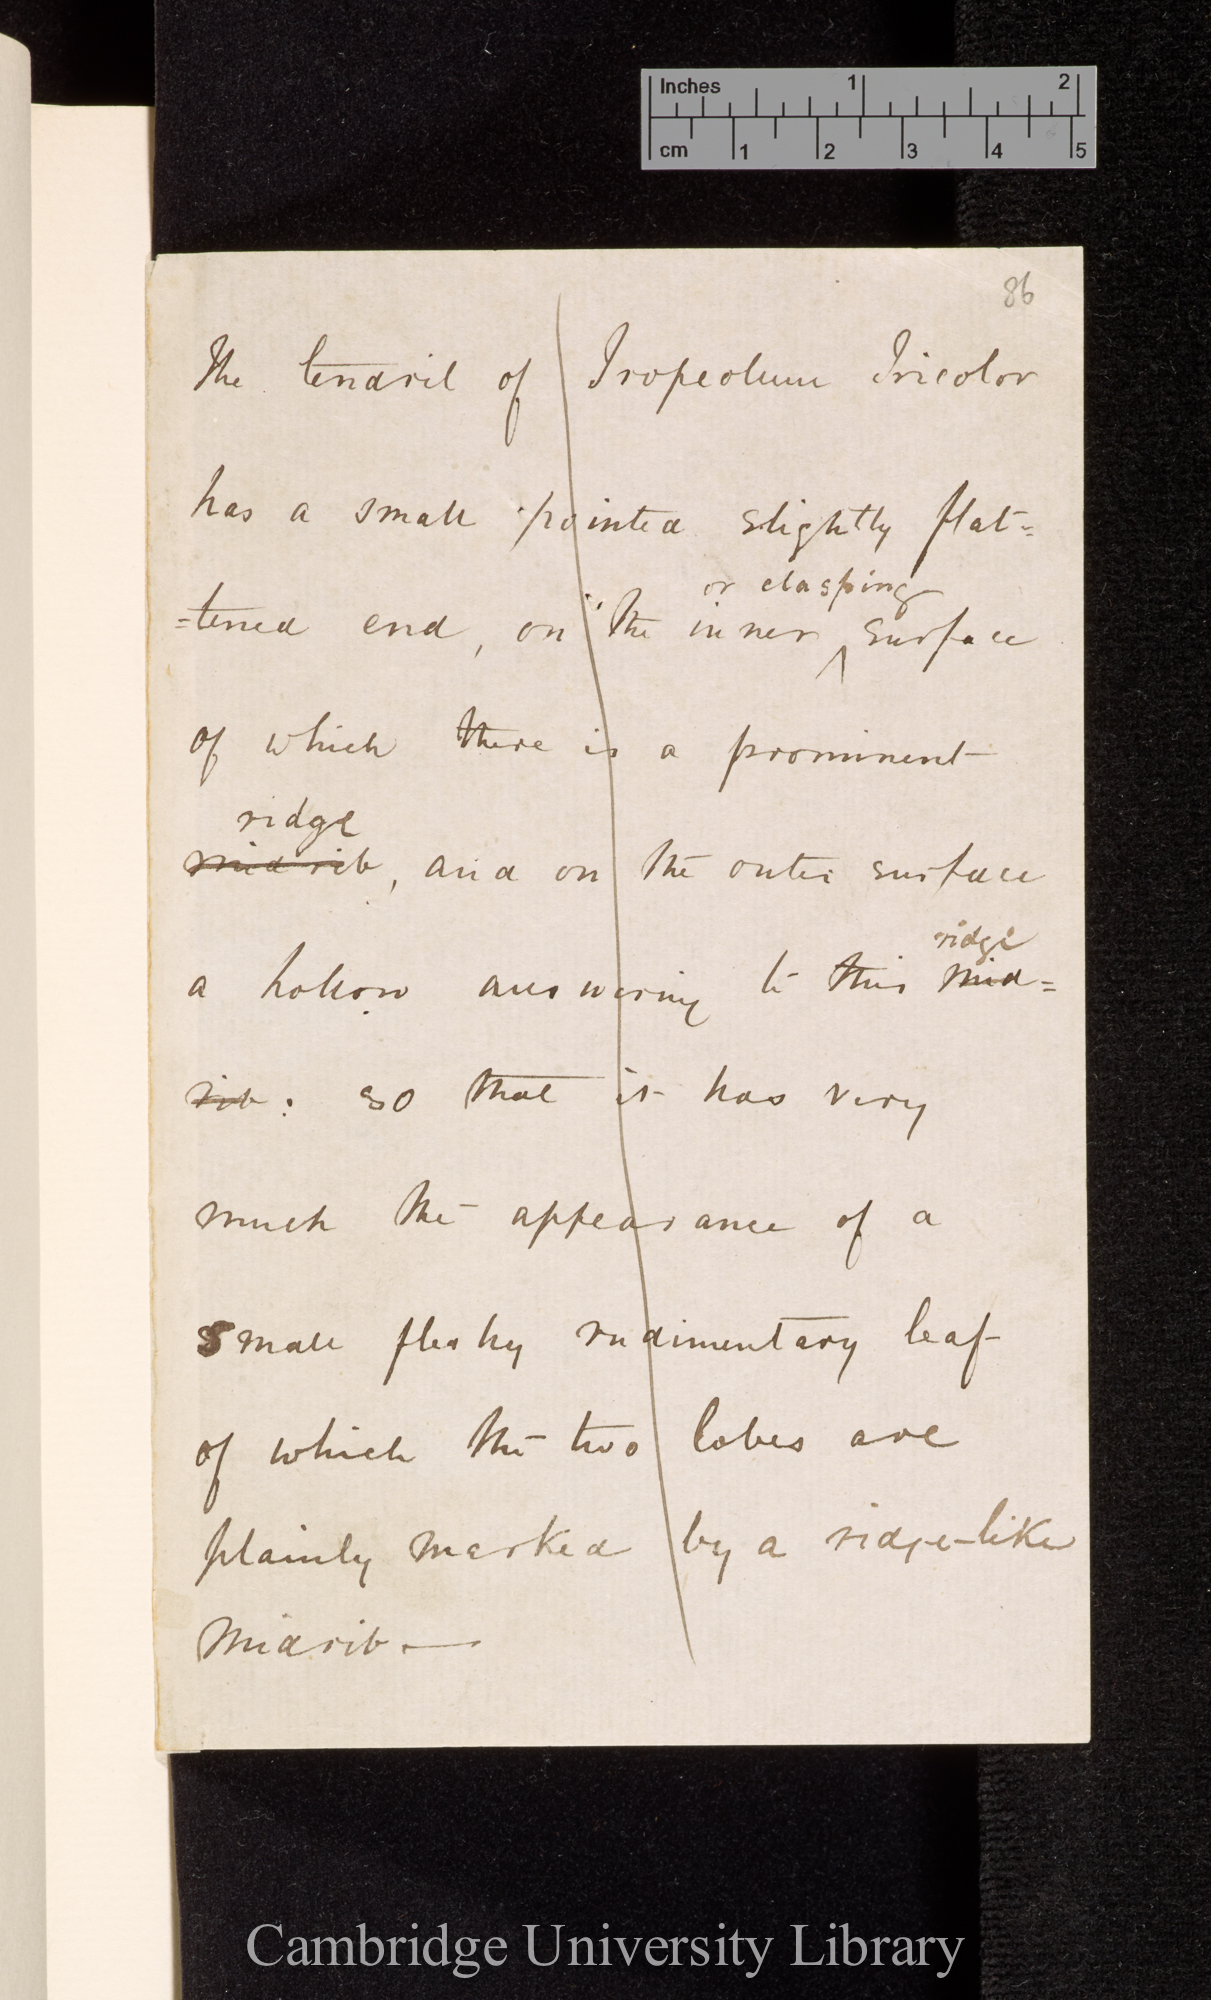 Inches 1 2
cm 1 2 3 4 5
86
The tendril of Tropeolum Tricolor
has a small pointed slightly flat=
=tened end, on the inner surface
or clasping
of which there is a prominent
ridge
midrib, and on the outer surface
ridge
a hollow answering to this mid=
rib: so that it has very
much the appearance of a
small fleshy rudimentary leaf
of which the two lobes are
plainly marked by a ridge-like
midrib —
Cambridge University Library